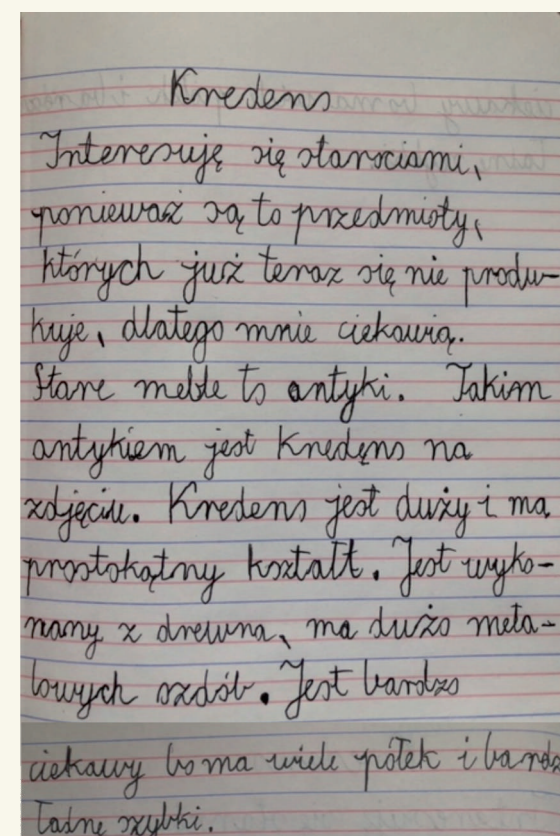 Kredens
Interesuję się starociami,
ponieważ są to przedmioty,
których już teraz się nie produ-
kuje, dlatego mnie ciekawią.
Stare meble to antyki. Takim
antykiem jest Kredens na
zdjęciu. Kredens jest duży i ma
prostokątny kształt. Jest wyko-
nany z drewna, ma dużo meta-
lowych ozdób. Jest bardzo
ciekawy bo ma wiele półek i bardz
ładne szybki.